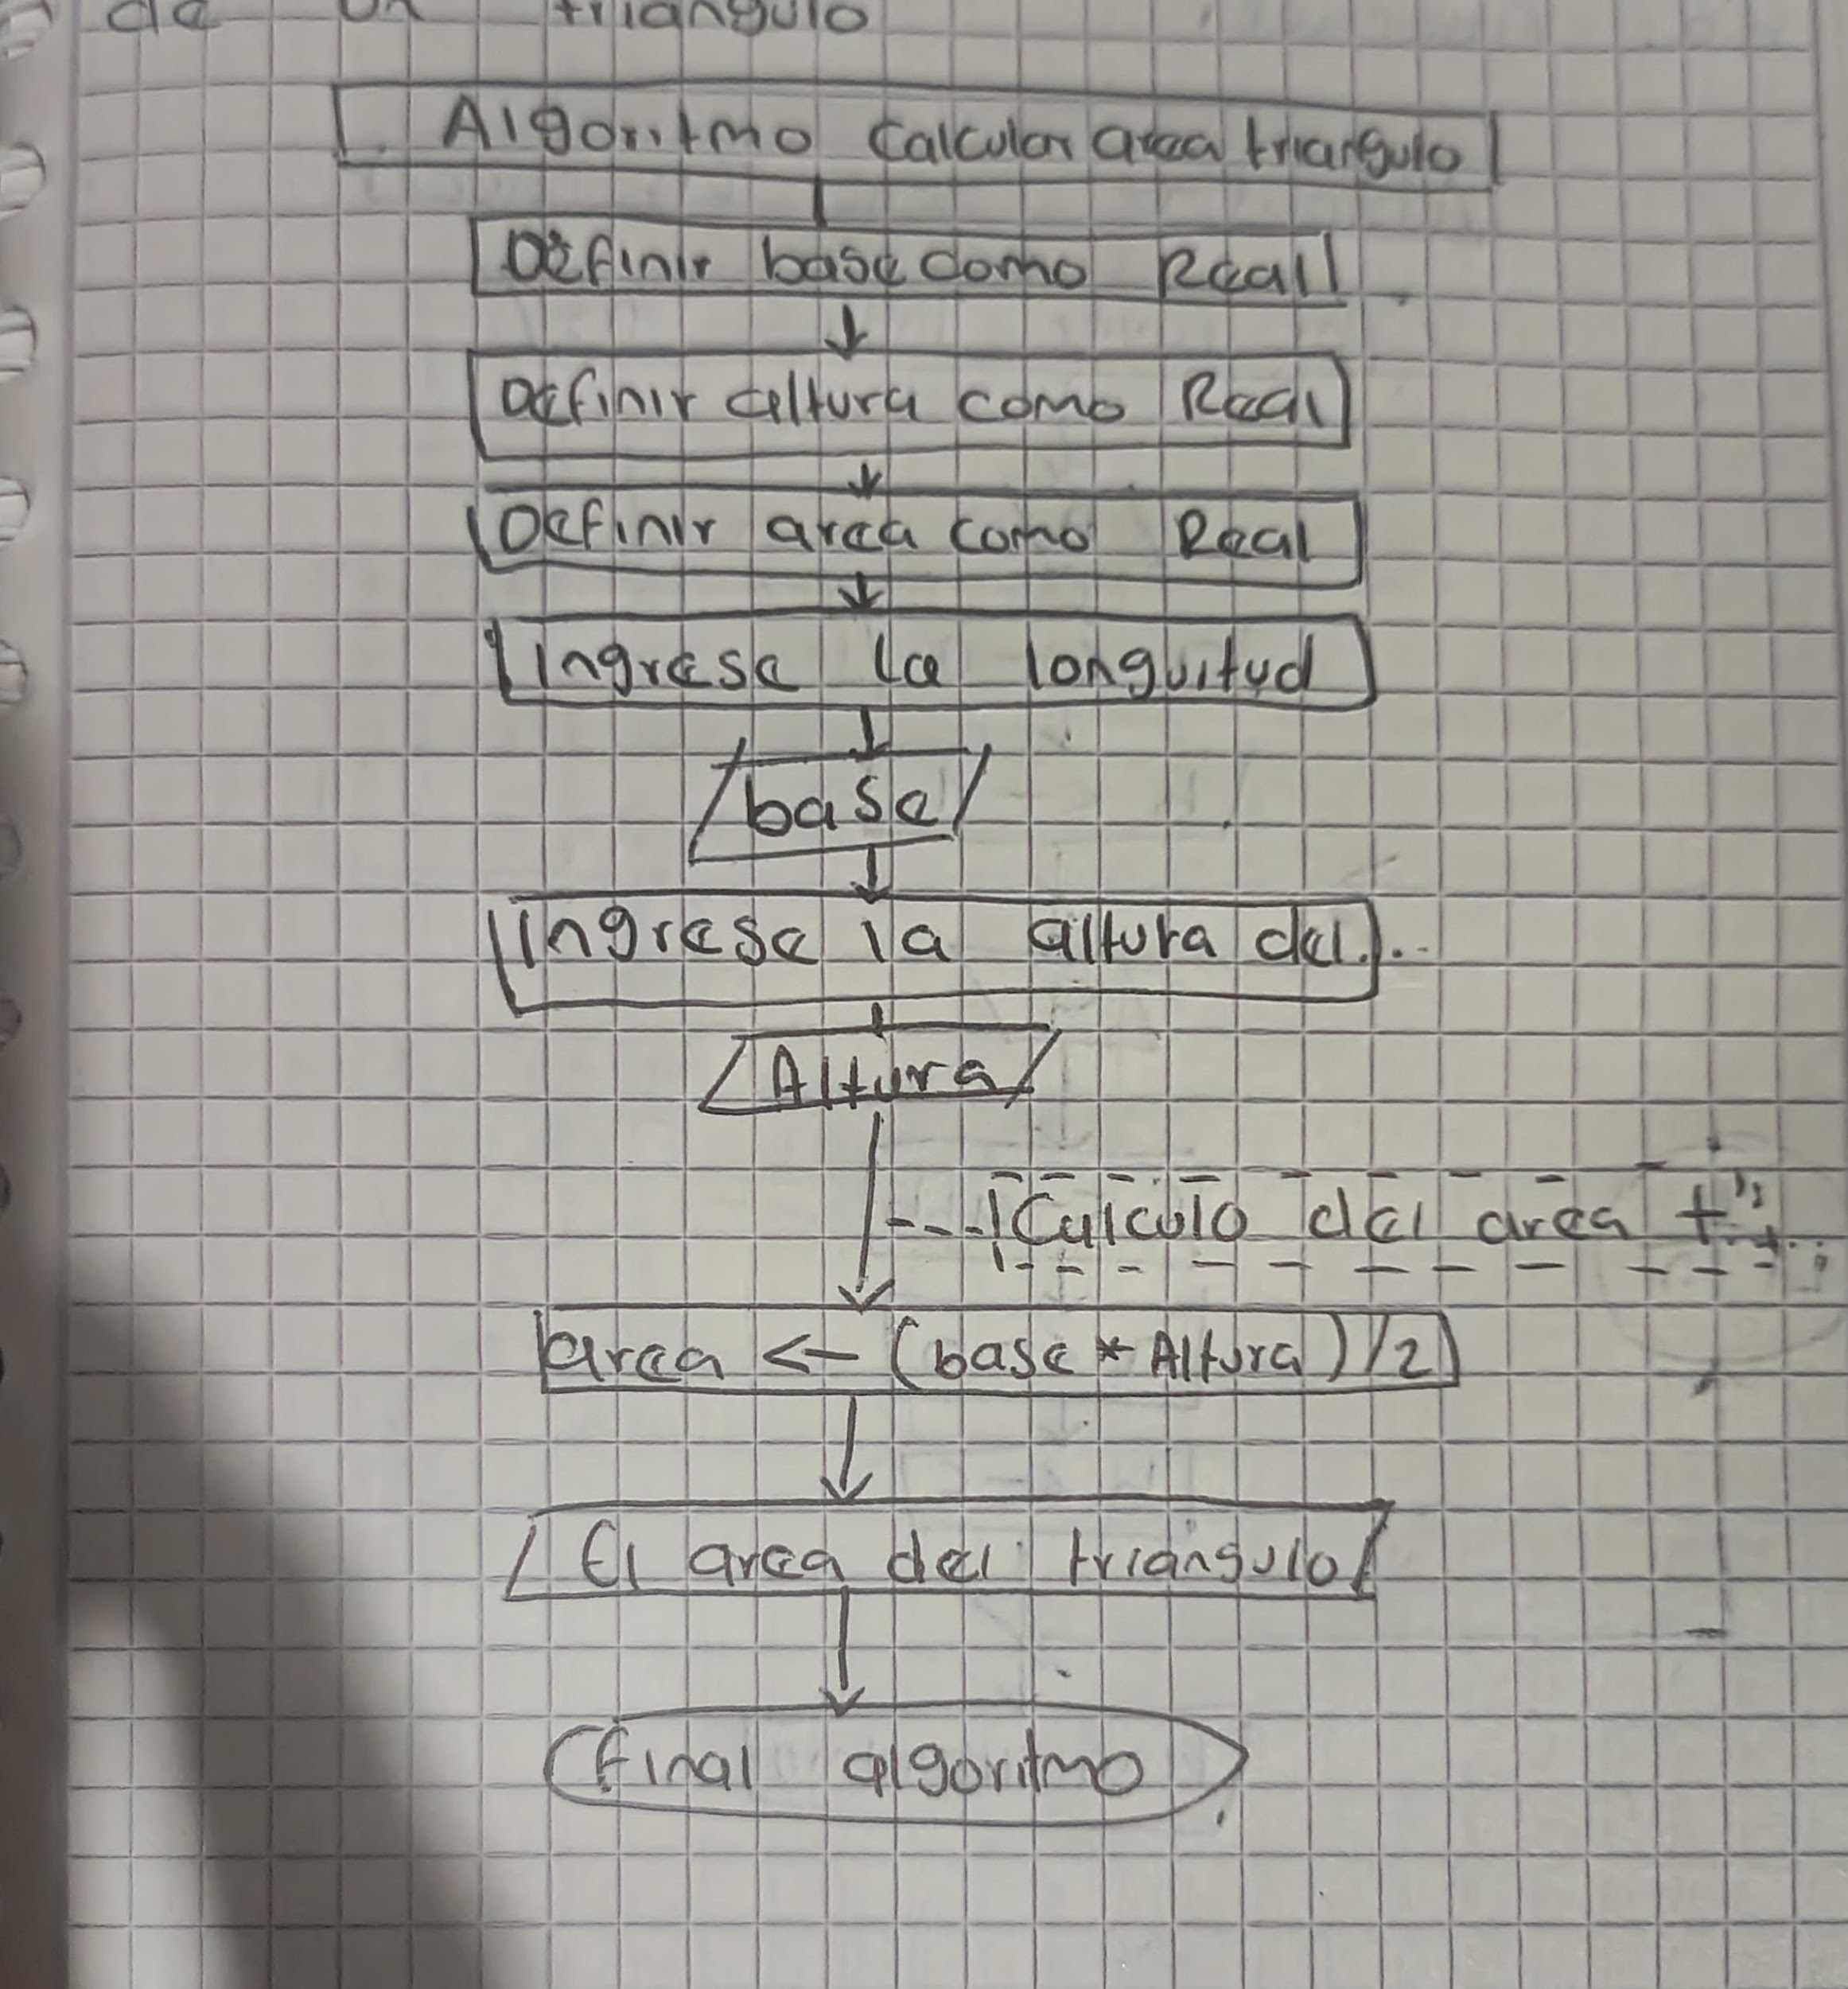 de un triangulo
Algoritmo Calcular area triangulo
Definir base como Real
Definir altura como Real
Definir area como Real
Ingrese la longuitud
base
Ingrese la altura del...
Altura
Calculo del area t...
area <- (base * Altura) / 2
El area del triángulo
Final algoritmo